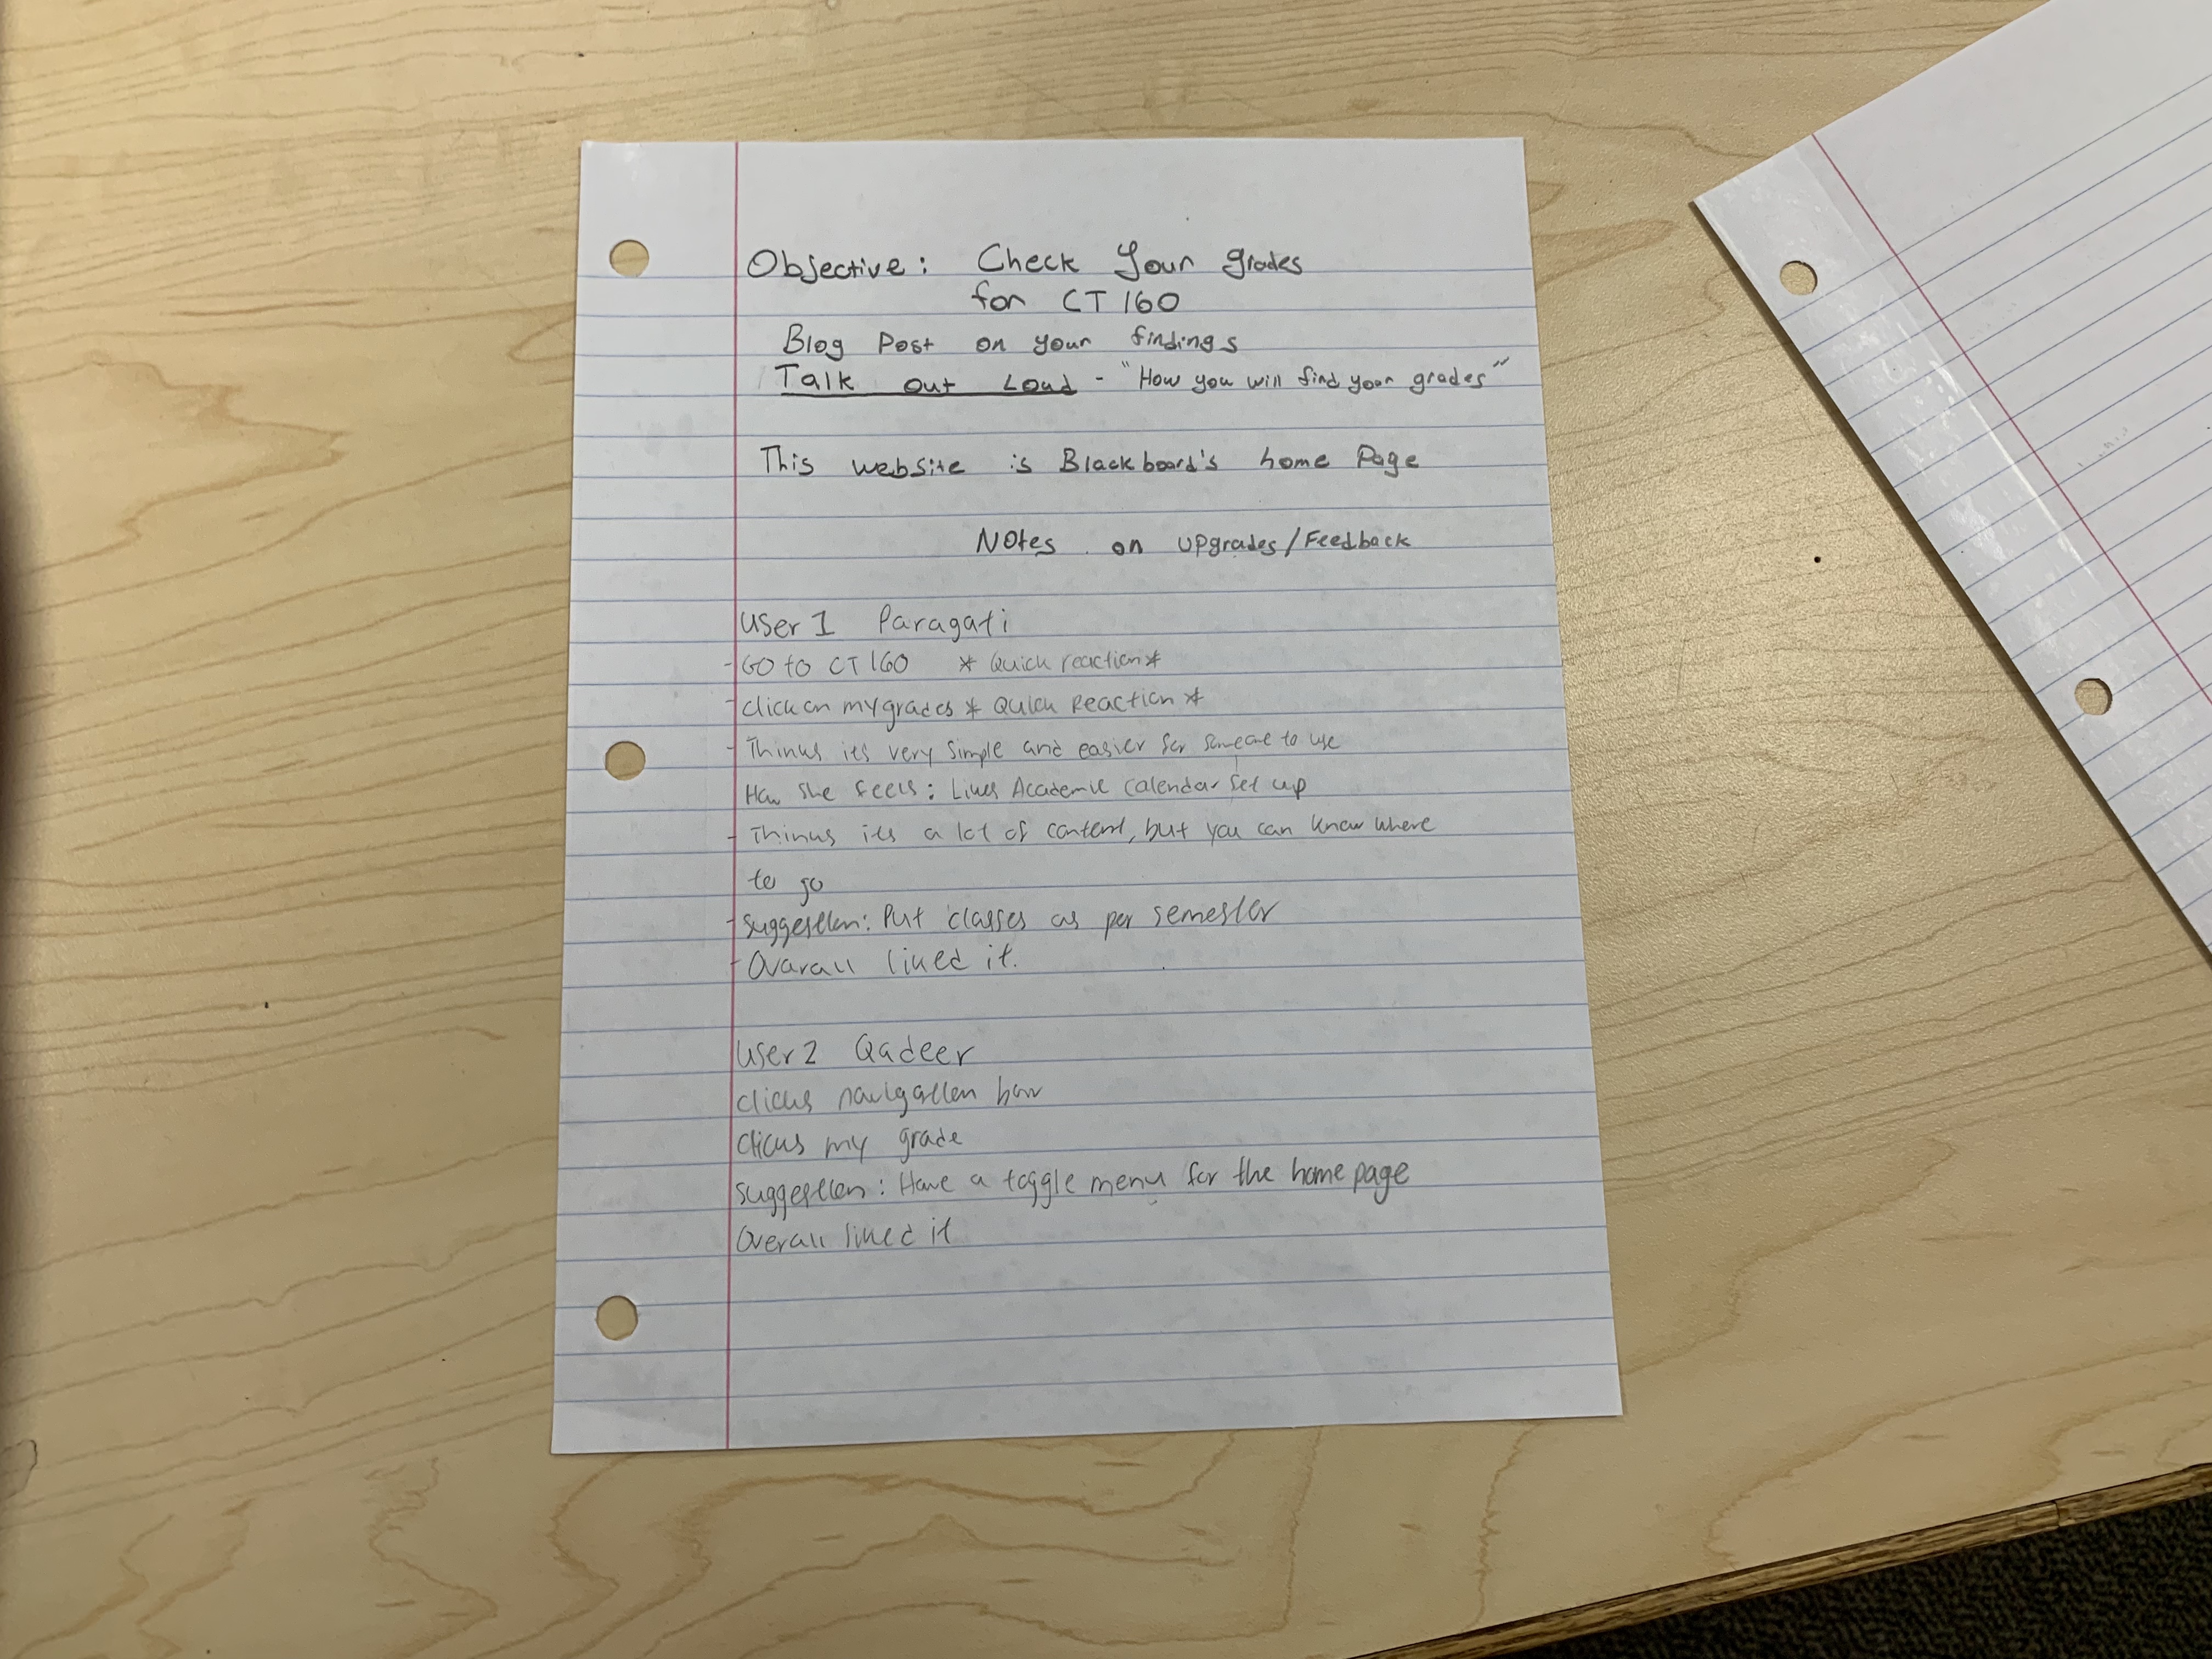 Objective: Check Your grades
for CT 160
Blog Post on your findings
Talk out Loud - "How you will find your grades"
This website is Blackboard's home Page
Notes on upgrades/Feedback
User 1 Paragati
- Go to CT 160 * Quick reaction *
- click on my grades * Quick Reaction *
- Thinks its very simple and easier for someone to use
How she feels: Likes Academic calendar set up
- Thinks its a lot of content, but you can know where
to go
- suggestion: Put classes as per semester
- Ovarall liked it.
User 2 Qadeer
clicks navigation bar
clicks my grade
suggestion: Have a toggle menu for the home page
Overall liked it